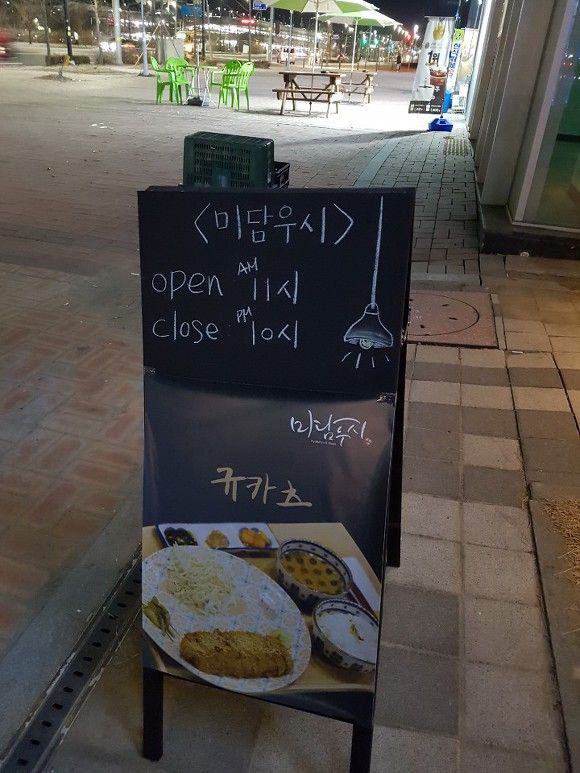 <미담우시>
open AM 11시
close PM 10시
미담우시
규카츠
1위